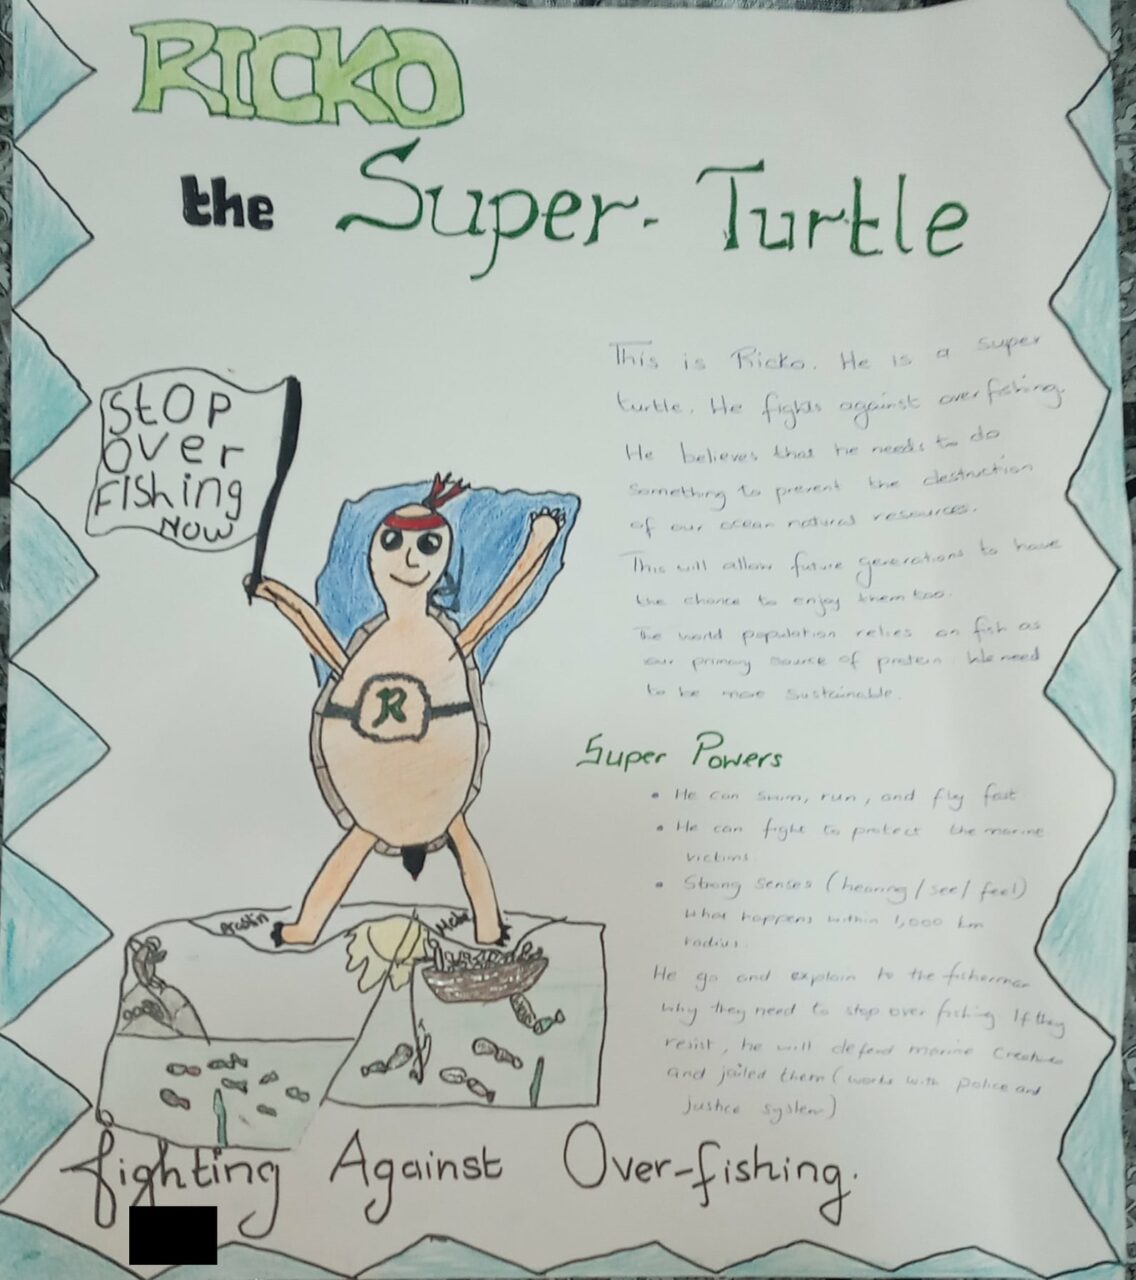 RICKO
the Super-Turtle
This is Ricko. He is a super
turtle. He fights against overfishing.
He believes that he needs to do
something to prevent the destruction
of our ocean natural resources.
This will allow future generations to have
the chance to enjoy them too.
The world population relies on fish as
our primary source of protein. We need
to be more sustainable.
StOP
over
FIShing
NOW
R
Super Powers
• He can swim, run, and fly fast
• He can fight to protect the marine
victims.
• Strong senses (hearing/see/feel)
what happens within 1,000 km
radius.
He go and explain to the fisherman
why they need to stop over fishing If they
resist, he will defend marine creatures
and jailed them (works with police and
justice system)
fighting Against Over-fishing.